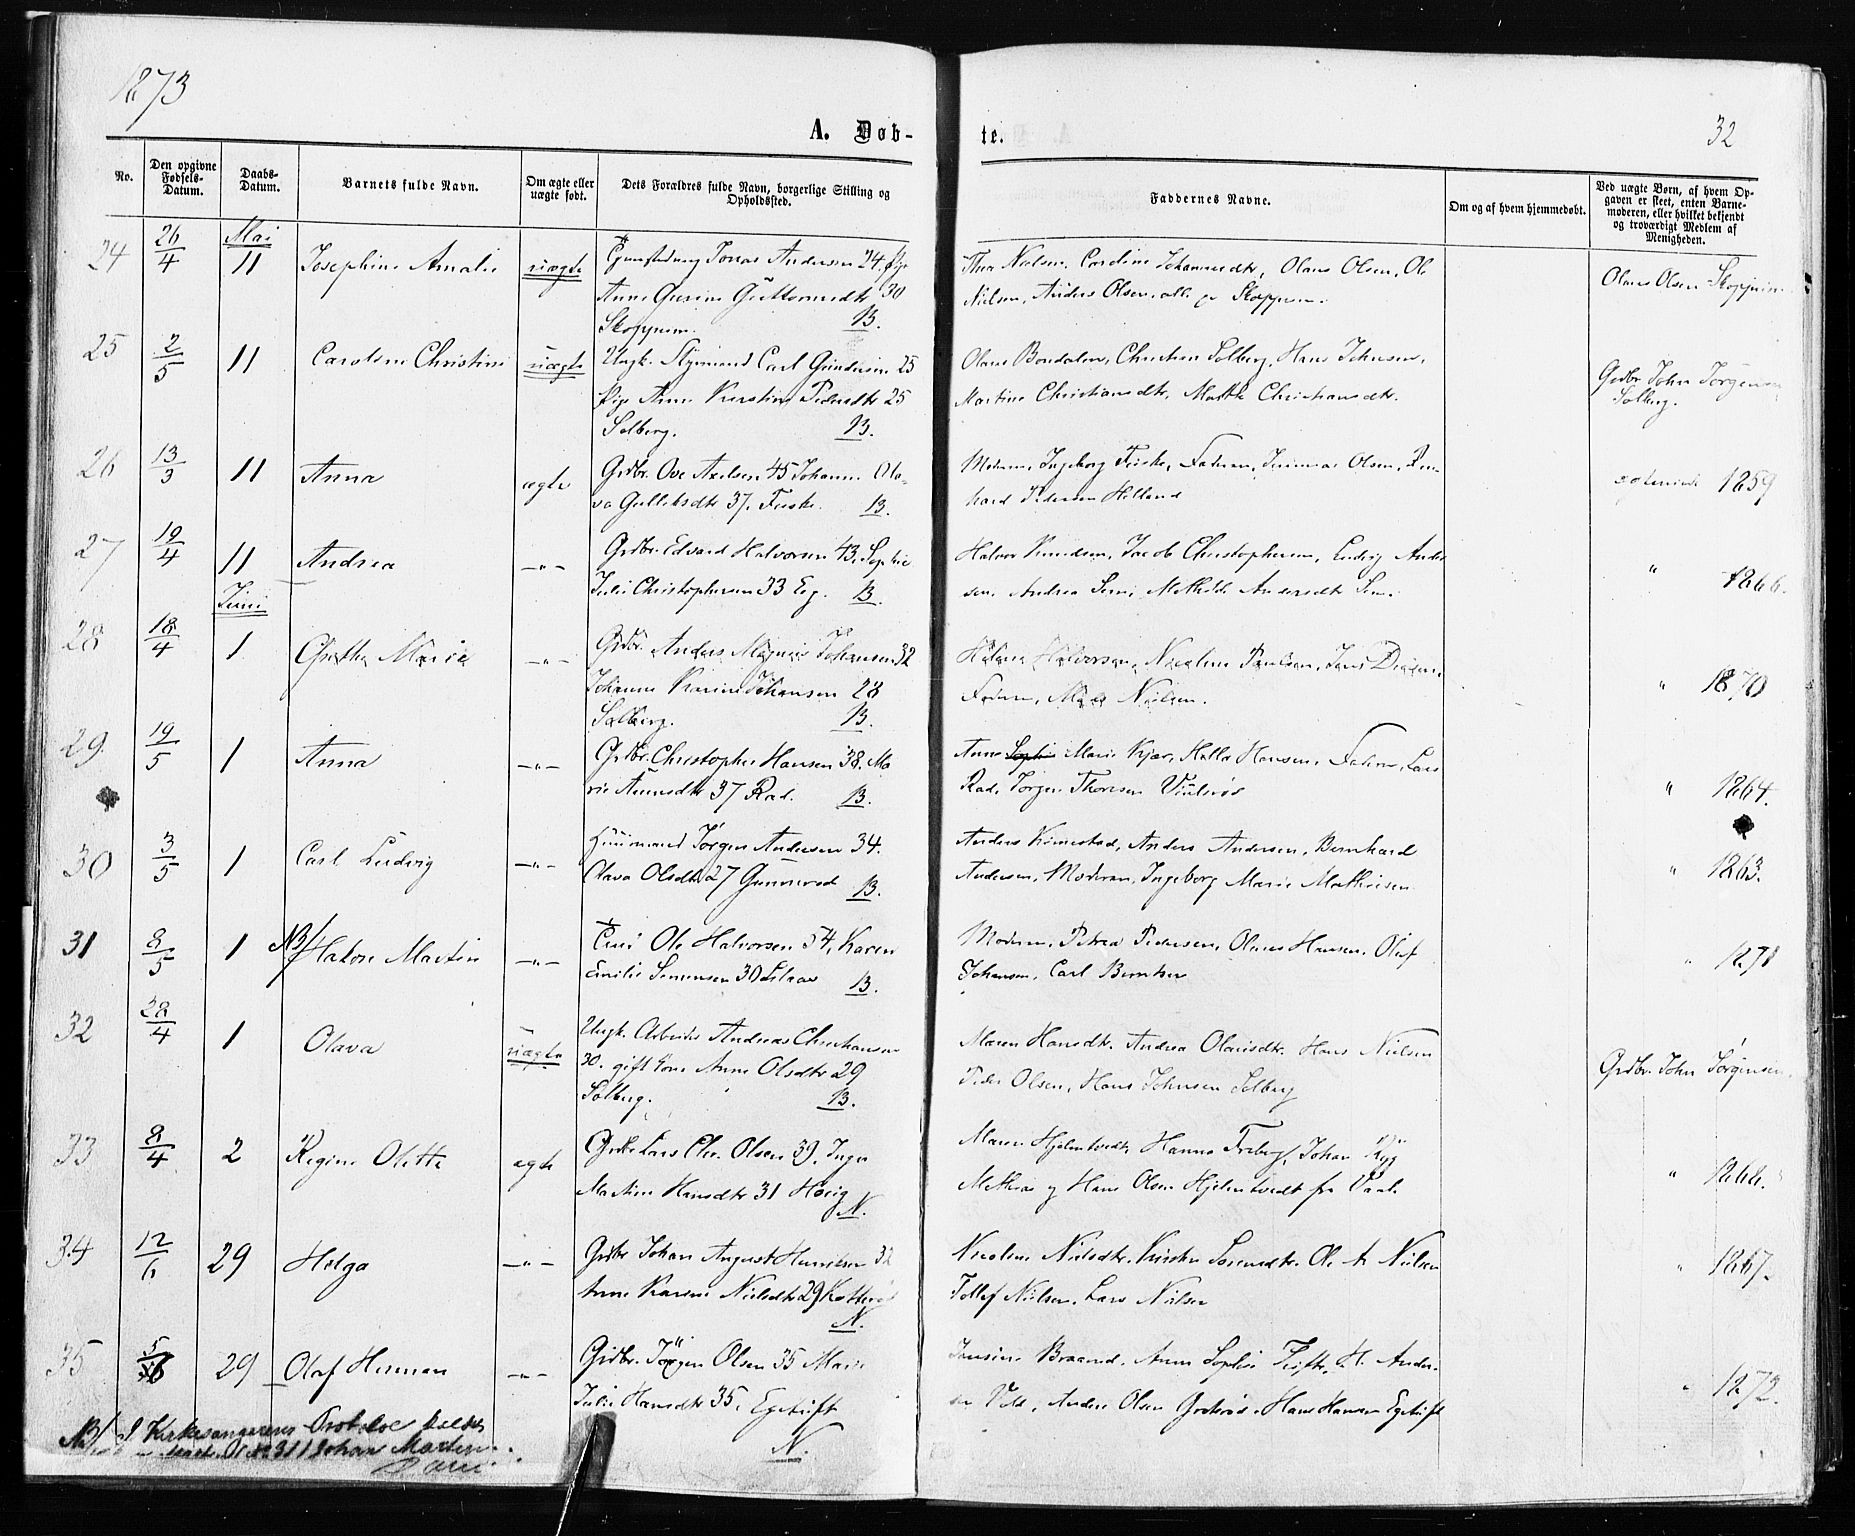 1873
32
A. Døb-
te.
No.
Den opgivne
Fødsels-
Datum.
Daabs-
Datum.
Barnets fulde Navn.
Om ægte eller
uægte født.
Dets Forældres fulde Navn, borgerlige Stilling og
Opholdssted.
Faddernes Navne.
Om og af hvem hjemmedøbt.
Ved uægte Børn, af hvem Op-
gaven er skeet, enten Barne-
moderen, eller hvilket bekjendt
og troværdigt Medlem af
Menigheden.
24 26/4 Mai 11 Josephine Amalie uægte
Jonas Andersen 24. Pige
Anne Gurine Guttormsdtr 30
Skoppum. B.
Thea Nielsen, Caroline Johannesdtr, Olaus Olsen, Ole
Nielsen, Anders Olsen, alle Skoppum.
Olaus Olsen Skoppum
25 2/5 11 Caroline Christine uægte
Ungk. Styrmand Carl Gundersen 25
Pige Anne Kirstine Pedersdtr 25
Solberg. B.
Olaus Bondalen, Christian Solberg, Hans Johnsen,
Martine Christiansdtr, Marthe Christiansdtr.
Grdbr John Jørgensen
Solberg.
26 13/3 11 Anna ægte
Grdbr. Ove Axelsen 45 Johanne Ola-
va Gulliksdtr 37. Feiske. B.
Moderen, Ingeborg Feiske, Faderen, Olsen,
Pedersen Helland
1859
27 19/4 11 Andrea -"-
Grdbr. Edvard Halvorsen 43, Sophie
Julie Christophersen 33 Eeg. B.
Halvor Knudsen, Jacob Christophersen, Ludvig Ander
sen, Andrea Sem, Mathilde Andersdtr Sem.
" 1866.
Juni
28 18/4 1 Grethe Marie -"-
Grdbr. Anders Magnus Johansen 32
Johanne Karine Johansen 28
Solberg. B.
Halvorsen, Nicoline Paulsen,
Faderen, Nielsen.
" 1870
29 19/5 1 Anna -"-
Grdbr. Christopher Hansen 38. Ma
rie 37 Rød. B.
Anne Sophie Marie Kjær, Helle Hansen, Faderen, Lars
Rød, Jørgen Thoresen
" 1864.
30 3/5 1 Carl Ludvig -"-
Huusmand Jørgen Andersen 34.
Olava Olsdtr 27 Gunnerød B.
Anders Andersen, Bernhard
Andersen, Moderen, Ingeborg Marie Mathisen
" 1863.
31 8/5 1 NB/ Hakon Martin -"-
Ole Halvorsen 54, Karen
Emilie Sørensen 30 B.
Moderen, Petrea Pedersen, Olaus Hansen, Oluf
Johansen, Carl Berntsen
" 1871
32 28/4 1 Olava uægte
Ungk. Arbeider Andreas Christiansen
30. gift Kone Anne Olsdtr 29
Solberg. B.
Maren Hansdtr. Andrea Olausdtr. Hans Nielsen
Peder Olsen, Hans Johnsen Solberg
Grdbr. John Jørgensen.
33 8/4 2 Regine Olette ægte
Grdbr Lars Chr. Olsen 39, Inger
Martine Hansdtr 31 N.
Maren Hjelmtvedt, Hanna Freberg, Johan
Mathias og Hans Olsen Hjelmtvedt fra Vaale
" 1866.
34 12/6 29 Helga -"-
Grdbr Johan August Henriksen 32
Anne Karine Nielsdtr 29 N.
Nicoline Nielsdtr. Kirstine Sørensdtr. Ole A. Nielsen
Tollef Nielsen, Lars Nielsen
" 1867.
35 29 Olaf Herman -"-
Grdbr. Jørgen Olsen 35 Marie
Julie Hansdtr 35. Egetuft
N.
Jensine Braarud, Anne Sophie Tufte, H. Ander-
sen Anders Olsen Hans Hansen Egetuft
" 1872.
NB/ I Kirkesangerens Protokol kaldes
No 31 / Johan Martin.